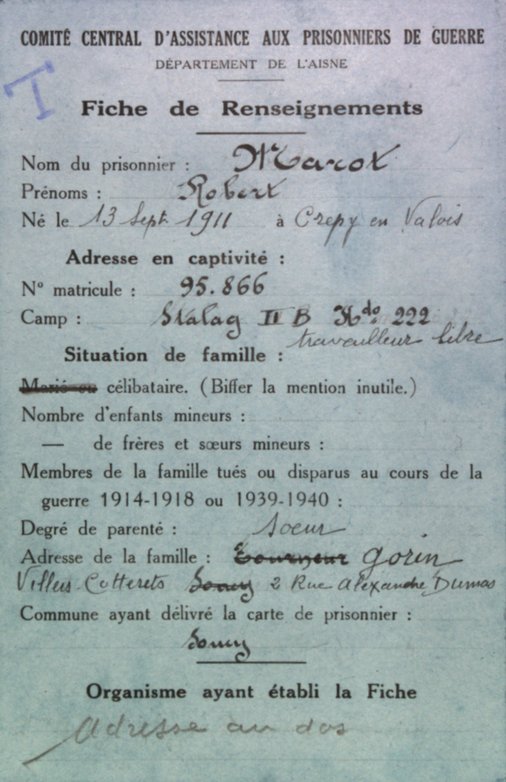 COMITÉ CENTRAL D'ASSISTANCE AUX PRISONNIERS DE GUERRE
DÉPARTEMENT DE L'AISNE
T
Fiche de Renseignements
Nom du prisonnier : Marot
Prénoms : Robert
Né le 13 Sept 1911 à Crepy en Valois
Adresse en captivité :
N° matricule : 95.866
Camp : Stalag II B Kdo 222
travailleur libre
Situation de famille :
Marié ou célibataire. (Biffer la mention inutile.)
Nombre d'enfants mineurs :
— de frères et sœurs mineurs :
Membres de la famille tués ou disparus au cours de la
guerre 1914-1918 ou 1939-1940 :
Degré de parenté : Soeur
Adresse de la famille : Tourneur Gorin
Villers Cotterets Soucy 2 Rue Alexandre Dumas
Commune ayant délivré la carte de prisonnier :
Soucy
Organisme ayant établi la Fiche
Adresse au dos